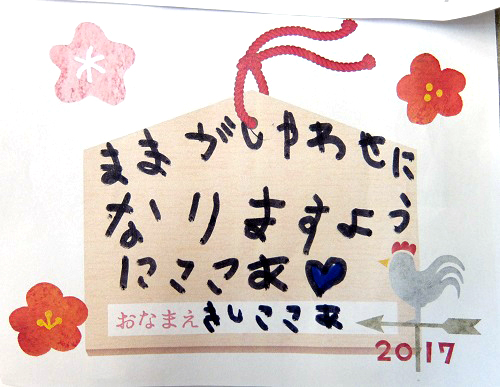 ままがしゆわせに
なりますよう
にここあ♥
おなまえ きしここあ
2017